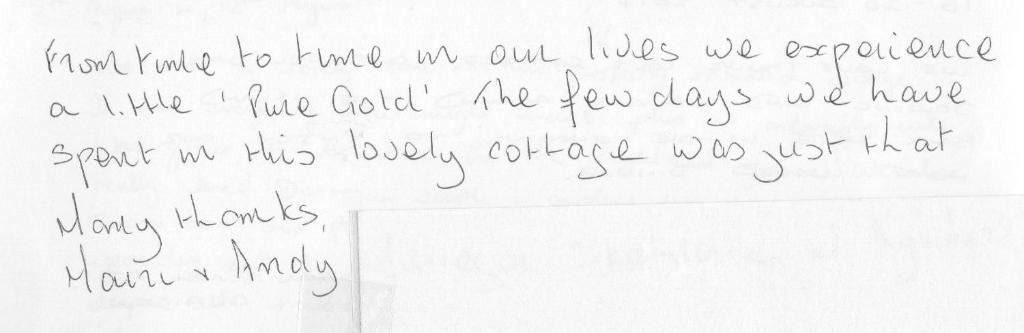 From time to time in our lives we experience
a little 'Pure Gold' The few days we have
spent in this lovely cottage was just that
Many thanks,
Mairi & Andy